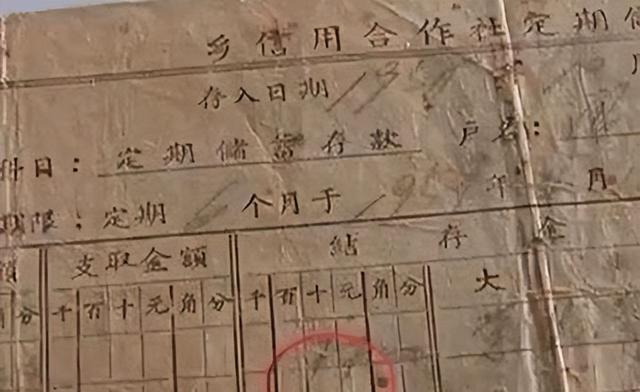 乡信用合作社定期
存入日期 195
科目：定期储蓄存款 户名：
期限：定期6个月于195 年 月
支取金额 结存金
角分 千百十元角分 千百十元角分 大